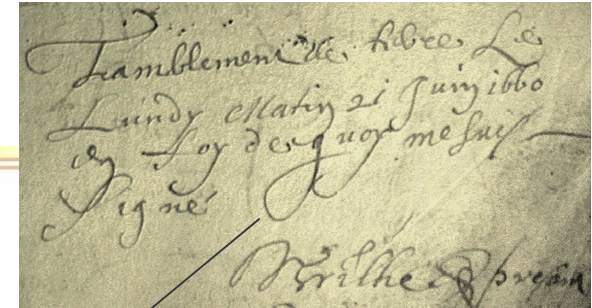 tramblement de terre Le
Lundy Matin 21 Juin 1660
en foy de quoy me suis
Signé